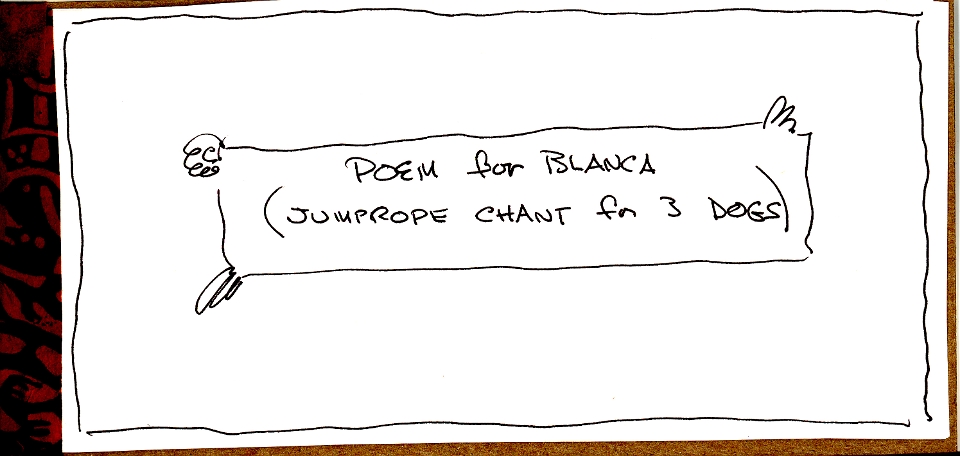 POEM for BLANCA
(JUMPROPE CHANT for 3 DOGS)